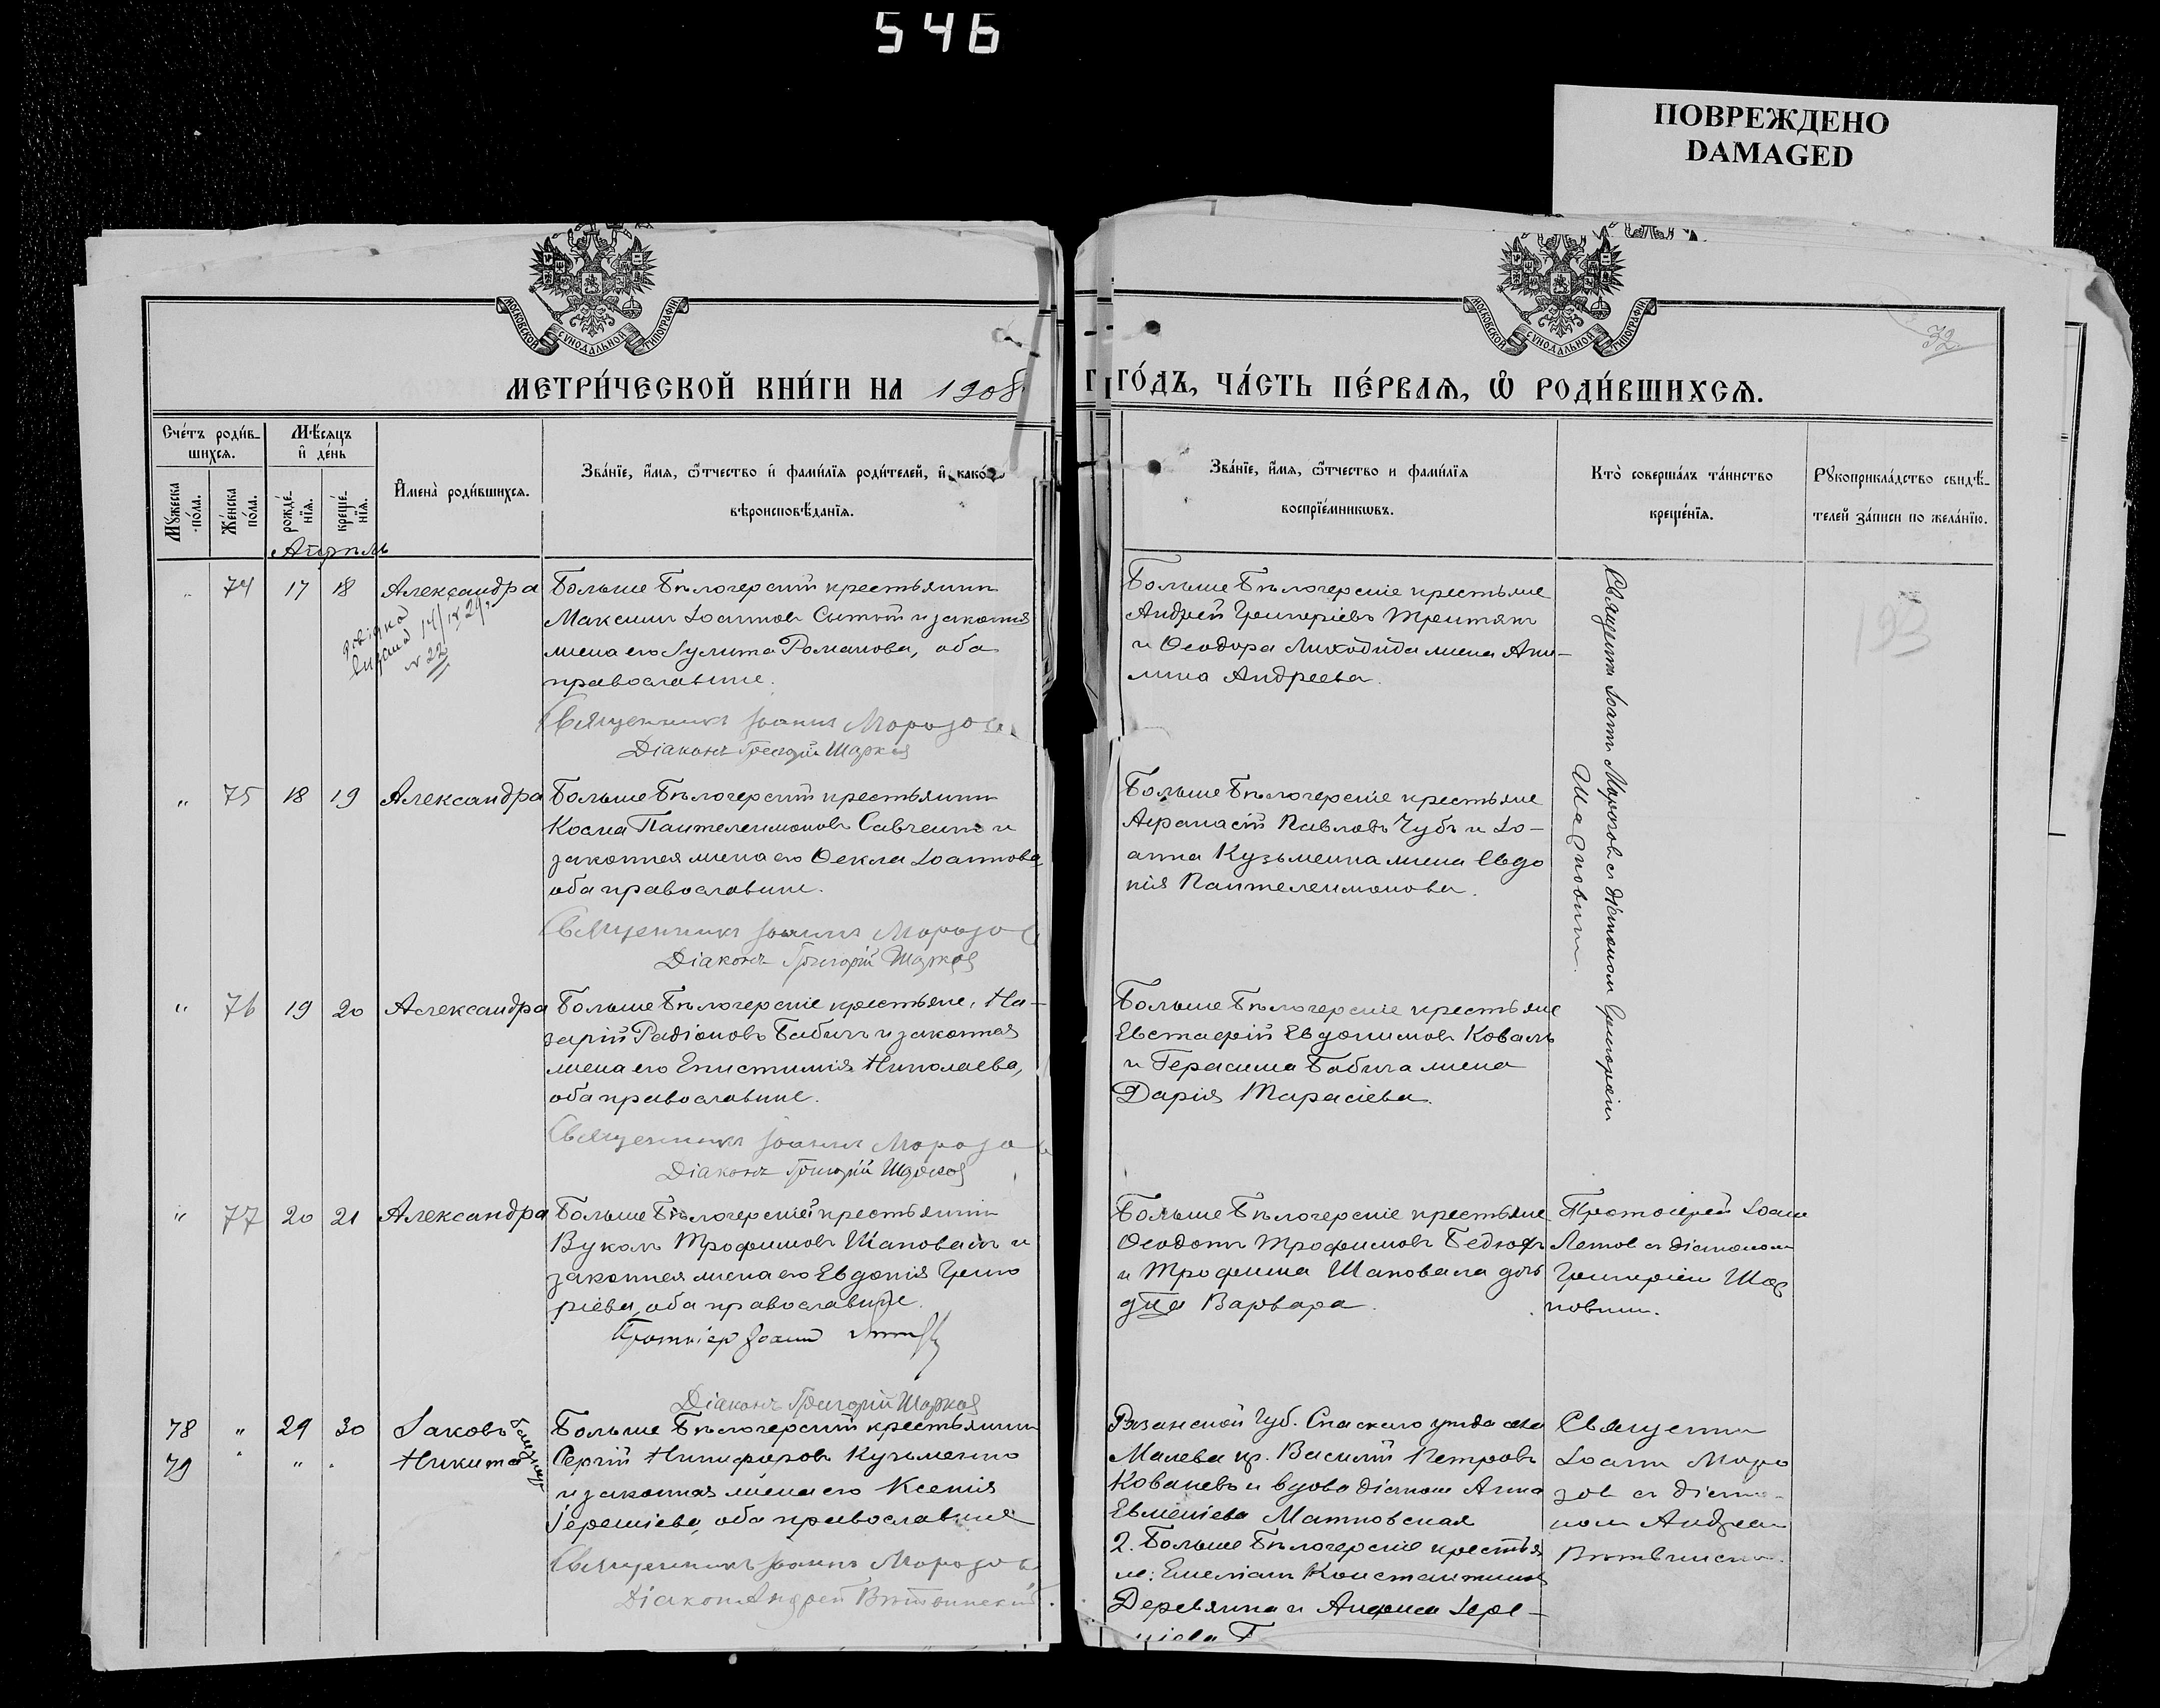 546
ПОВРЕЖДЕНО
DAMAGED
МОСКОВСКОЙ СѴНОДАЛЬНОЙ ТИПОГРАФІИ
МОСКОВСКОЙ СѴНОДАЛЬНОЙ ТИПОГРАФІИ
32
МЕТРИ́ЧЕСКОЙ КНИ́ГИ НА 1908
ГО́ДЪ, ЧА́СТЬ ПЕ́РВАѦ, Ѽ РОДИ́ВШИХСѦ.
Сче́тъ роди́в-
шихсѧ.
Мꙋ́жеска
по́ла.
Же́нска
по́ла.
Мѣ́сѧцъ
и҆ де́нь
рожде́-
нїѧ.
креще́-
нїѧ.
И҆мена̀ роди́вшихсѧ.
Зва́нїе, и҆́мѧ, ѻ҆́тчество и҆ фами́лїѧ роди́телей, и҆ како́
вѣроисповѣ́данїѧ.
Зва́нїе, и҆́мѧ, ѻ҆́тчество и фами́лїѧ
воспрїе́мникѡвъ.
Кто̀ соверша́лъ та́инство
креще́нїѧ.
Рꙋкоприкла́дство свидѣ́-
телей за́писи по жела́нїю.
Апрѣль
74 17 18 Александра
Больше Бѣлозерскій крестьянинъ
Максимъ Іоанновъ Сытый и законная
жена его Іулита Романова, оба
православные.
Священникъ Іоаннъ Морозовъ
Діаконъ Григорій Шарков
№ 22
Больше Бѣлозерскіе крестьяне
Андрей Григоріевъ Третякъ
и Ѳеодора Лиходида жена Аки-
лина Андреева.
Священникъ Іоаннъ Морозовъ съ діакономъ Григоріемъ
Шарковымъ.
193
" 75 18 19 Александра
Больше Бѣлозерскій крестьянинъ
Косма Пантелеимоновъ Савченко и
законная жена его Ѳекла Іоаннова,
оба православные.
Священникъ Іоаннъ Морозов
Діаконъ Григорій Шарков
Больше Бѣлозерскіе крестьяне
Афанасій Павловъ Чубъ и Іо-
анна Кузьменка жена Евдо
кія Пантелеимонова.
" 76 19 20 Александра
Больше Бѣлозерскіе крестьяне, На-
зарій Радіоновъ Бабичъ и законная
жена его Епистимія Николаева,
оба православные.
Священникъ Іоаннъ Морозов
Діаконъ Григорій Шарков
Больше Бѣлозерскіе крестьяне
Евстафій Евдокимовъ Коваль
и Герасима Бабича жена
Дарія Тарасіева.
" 77 20 21 Александра
Больше Бѣлозерскій крестьянинъ
Вуколъ Трофимовъ Шаповалъ и
законная жена его Евдокія Григо
ріева, оба православные.
Протоіер Іоаннъ
Діаконъ Григорій Шарков
Больше Бѣлозерскіе крестьяне
Ѳеодотъ Трофимовъ
и Трофима Шаповала
Варвара.
Протоіерей Іоаннъ
съ діакономъ
Григоріемъ Шар
ковымъ.
78 " 29 30 Іаковъ
79 " " Никита
близнецы
Больше Бѣлозерскій крестьянинъ
Сергій Никифоровъ Кузьменко
и законная жена его Ксенія
Іереміева, оба православные
Священникъ Іоаннъ Морозовъ
Діаконъ Андрей
Рязанской Губ. Спаскаго уѣзда села
кр. Василій Петровъ
и вдова діакона Анна
Евменіева
2. Больше Бѣлозерскіе крестья
не: Емеліанъ Константиновъ
Деревянка и Анфиса Іере-
міева
Священникъ
Іоаннъ Моро
зов съ діако-
номъ Андреем